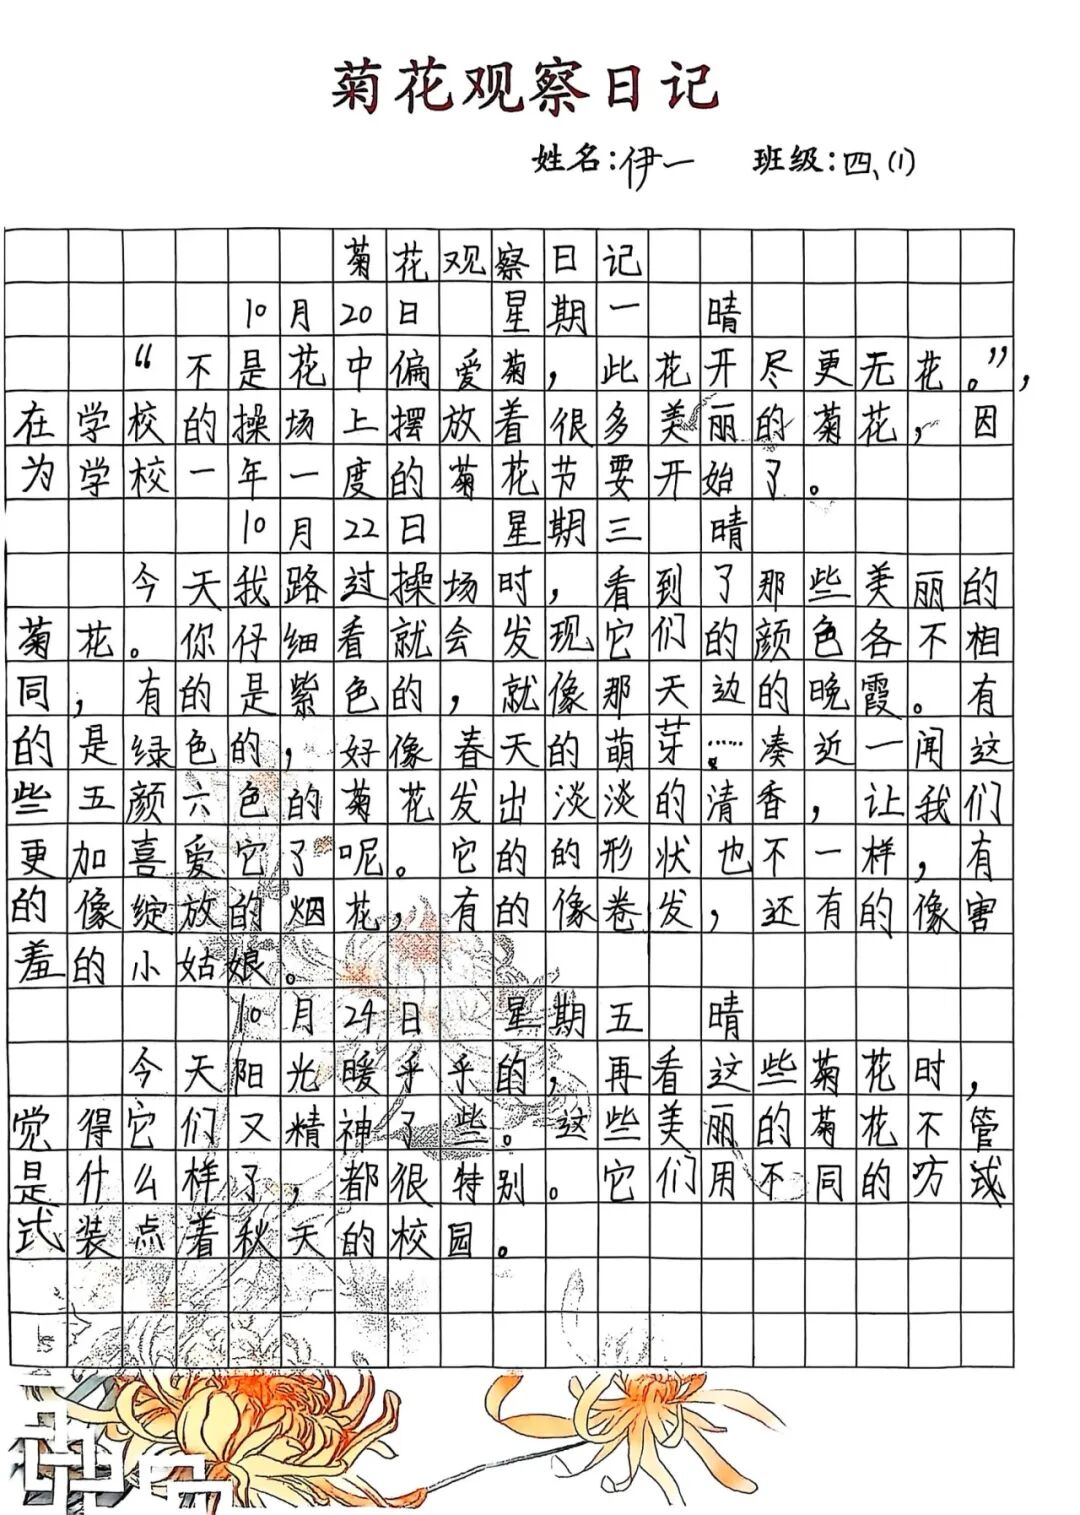 菊花观察日记
姓名:伊一 班级:四、(1)
菊花观察日记
10月20日 星期一 晴
“不是花中偏爱菊，此花开尽更无花。”，
在学校的操场上摆放着很多美丽的菊花，因
为学校一年一度的菊花节要开始了。
10月22日 星期三 晴
今天我路过操场时，看到了那些美丽的
菊花。你仔细看就会发现它们的颜色各不相
同，有的是紫色的，就像那天边的晚霞。有
的是绿色的，好像春天的萌芽……。凑近一闻这
些五颜六色的菊花发出淡淡的清香，让我们
更加喜爱它了呢。它的的形状也不一样，有
的像绽放的烟花，有的像卷发，还有的像害
羞的小姑娘。
10月24日 星期五 晴
今天阳光暖乎乎的，再看这些菊花时，
觉得它们又精神了些。这些美丽的菊花不管
是什么样了，都很特别。它们用不同的方式
式装点着秋天的校园。